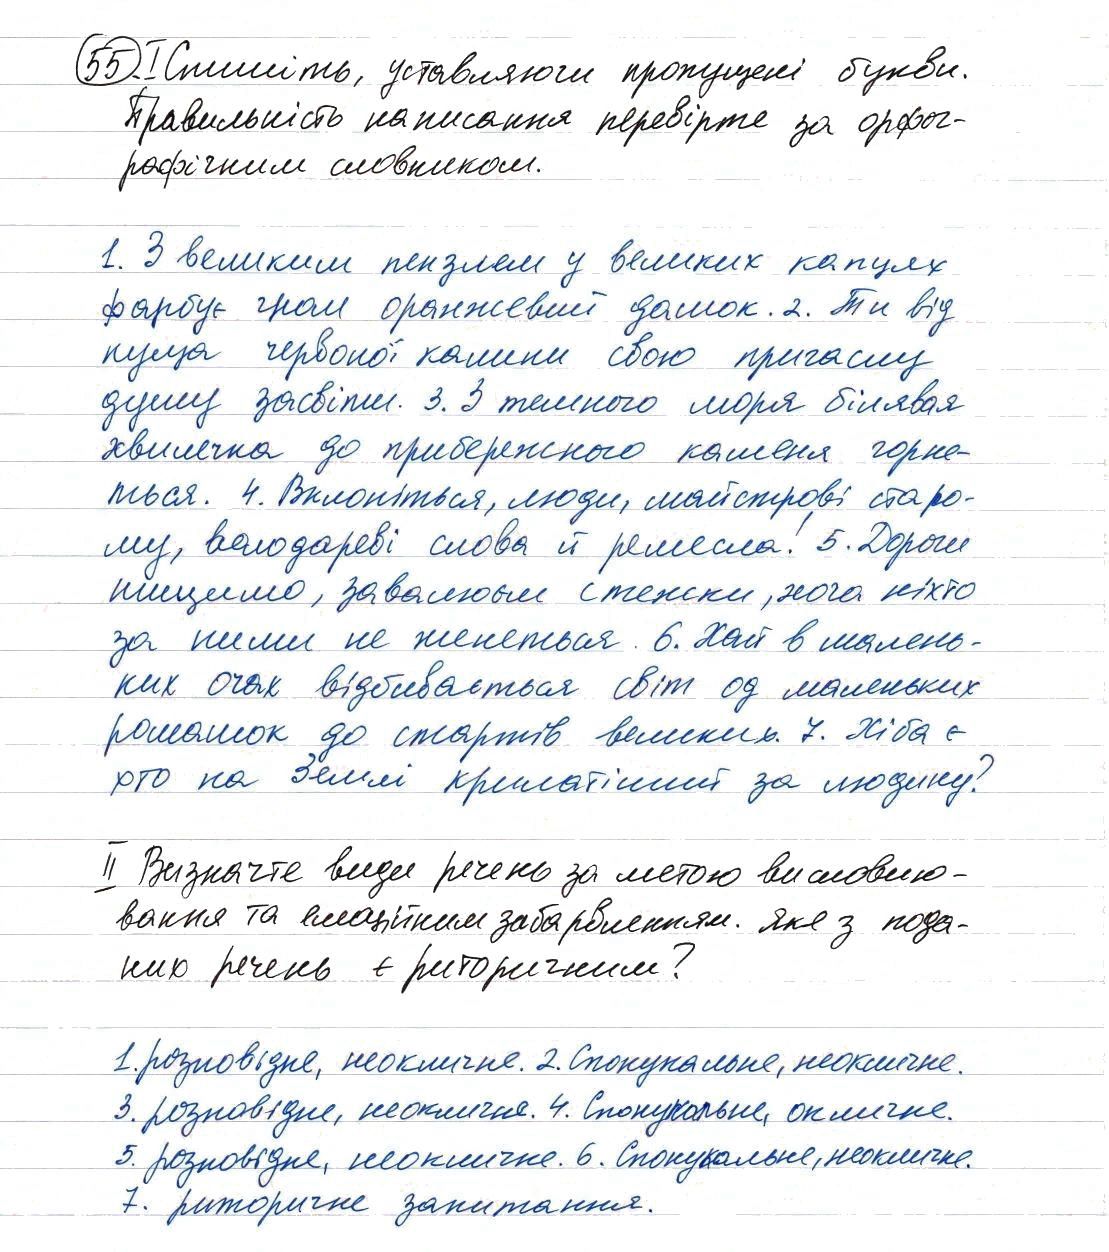 55. I Спишіть, уставляючи пропущені букви.
Правильність написання перевірте за орфог-
рафічним словником.
1. З великим пензлем у великих капцях
фарбує гном оранжевий дамок. 2. Ти від
куща червоної калини свою пригаслу
душу засвіти. 3. З темного моря білявая
хвилечка до прибережного каменя горне-
ться. 4. Вклоніться, люди, майстрові старо-
му, володареві слова й ремесла! 5. Дороги
нищимо, завалюєм стежки, хоча ніхто
за ними не женеться. 6. Хай в малень-
ких очах відбивається світ од маленьких
ромашок до стартів великих. 7. Хіба є
хто на Землі крилатіший за людину?
II Визначте види речень за метою висловлю-
вання та емоційним забарвленням. Яке з пода-
них речень є риторичним?
1. розповідне, неокличне. 2. Спонукальне, неокличне.
3. розповідне, неокличне. 4. Спонукальне, окличне.
5. розповідне, неокличне. 6. Спонукальне, неокличне.
7. риторичне запитання.